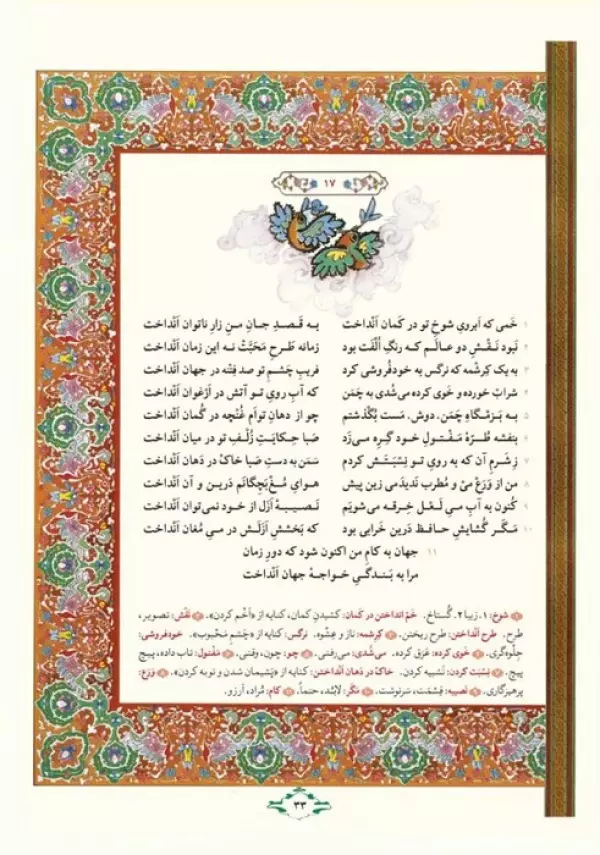 ۱۷
۱ خَمی که اَبرویِ شوخِ تو در کَمان اَنْداخت به قَصدِ جانِ مـنِ زارِ ناتوان اَنْداخت
۲ نَبود نَقْشِ دو عالَـم کـه رنگِ اُلْفَت بود زمانه طَرحِ مَحَبَّتْ نـه این زمان اَنْداخت
۳ به یک کِرِشمه که نرگس به خودفُروشی کرد فریبِ چَشـمِ تو صد فِتْنه در جهان اَنْداخت
۴ شرابْ خورده و خَوی کرده می‌شُدی به چَمَن که آبِ رویِ تـو آتش در اَرْغَوان اَنْداخت
۵ بـه بَزمْگاهِ چَمَن، دوش، مَست بُگْذَشتم چو از دهانِ تواَم غُنْچه در گُمان اَنْداخت
۶ بَنفشه طُـرّهٔ مَـفْتـولِ خـود گِـرِه مـی‌زَد صَبا حِکایَتِ زُلْـفِ تو در میان اَنْداخت
۷ زِ شَرمِ آن که به رویِ تـو نِسْبَتَـش کردم سَمَن به دستِ صَبا خاکْ در دَهان اَنْداخت
۸ من از وَرَعْ مِیْ و مُطرِب نَدیدَمی زین پیش هـوایِ مُـغْ‌بَچِگانَم دَرین و آن اَنْداخت
۹ کُنون به آبِ مـیِ لَـعْل خِـرقه مـی‌شویَم نَـصـیـبـهٔ اَزَل از خـود نمی‌توان اَنْداخت
۱۰ مَـگَـر گُشایشِ حـافـظ دَرین خَرابی بود که بَخشِشِ اَزَلَش در مـیِ مُغان اَنْداخت
۱۱ جهان به کامِ من اکنون شود که دورِ زمان
مرا به بَـنـدگـیِ خـواجـهٔ جهان اَنْداخت
۱ شوخ: ۱. زیبا ۲. گُستاخ. خَمْ انداختن در کمان: کشیدنِ کمان، کنایه از «اَخْم کردن». ۲ نَقْش: تصویر،
طرح. طَرح اَنْداختن: طرح ریختن. ۳ کِرِشمه: ناز و عِشْوه. نرگس: کنایه از «چَشمِ مَحْبوب». خودفُروشی:
جِلْوه‌گَری. ۴ خَوی کرده: عَرَق کرده. می‌شُدی: می‌رفتی. ۵ چو: چون، وقتی. ۶ مَفْتول: تاب داده، پیچ
پیچ. ۷ نِسْبَت کردن: تَشبیه کردن. خاکْ در دَهان اَنْداختن: کنایه از «پَشیمان شدن و توبه کردن». ۸ وَرَع:
پرهیزگاری. ۹ نَصیبه: قِسْمَت، سَرنوشت. ۱۰ مَگَر: لابُد، حتماً. ۱۱ کام: مُراد، آرزو.
۳۳